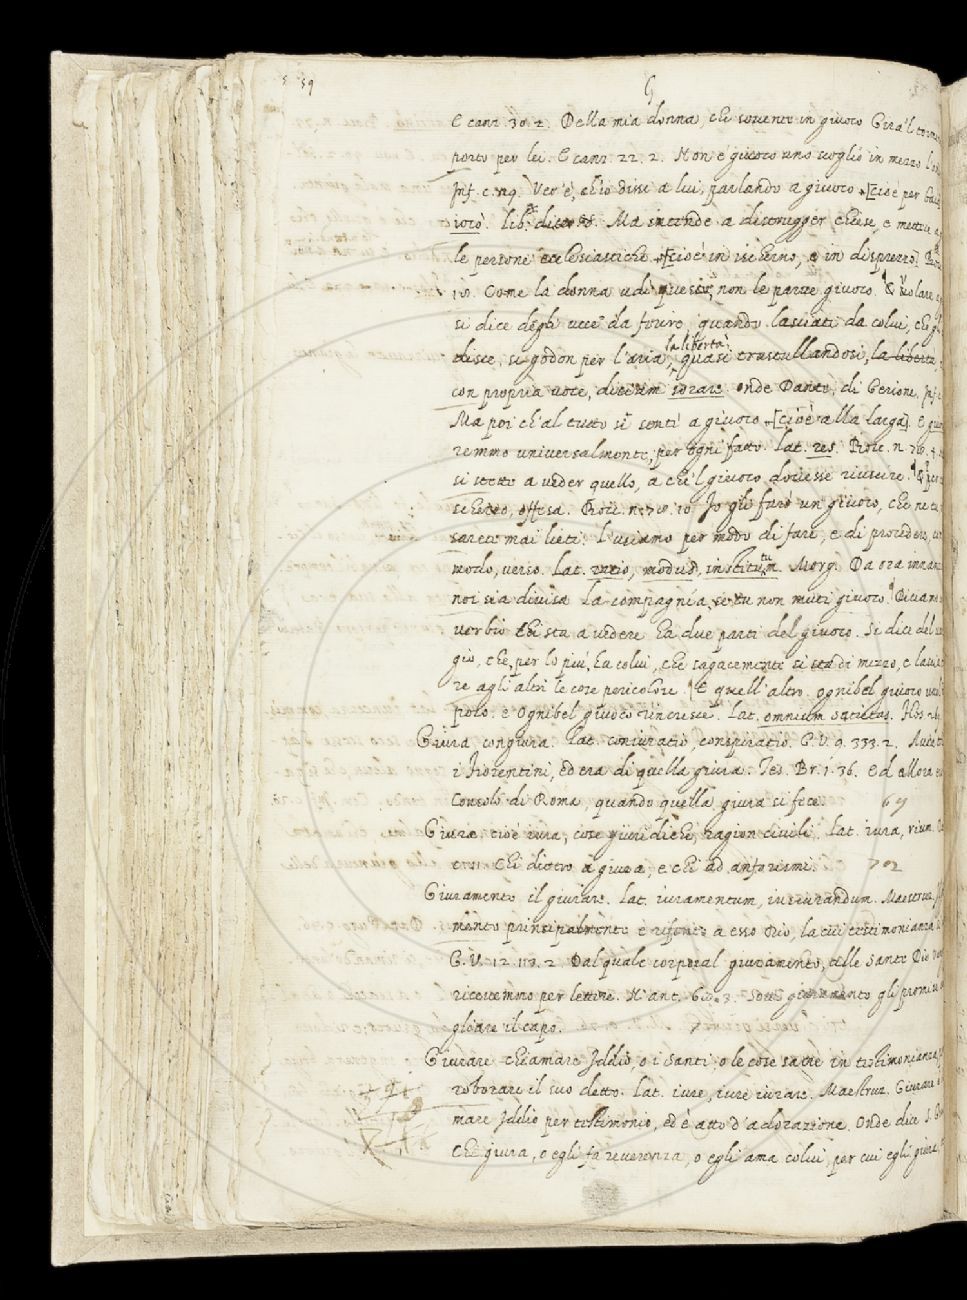 59
G
E canz. 30. 2. Della mia donna, che sovente in giuoco Gira'l
porto per lei. E canz. 22. 2. Non è giuoco uno scoglio in mezzo
Inf. c. Ver'è, ch'io dissi a lui, parlando a giuoco [cioè per
ioco. lib. Ma intende a distrugger chiese, e mettere
le persone ecclesiastiche [cioè in ischerno, e in disprezzo]
10. Come la donna udì questo, non le parve giuoco. volare
si dice degli uccelli da fouro, quando lasciati da colui, che
disce, si godon per l'aria, la libertà quasi trastullandosi, la libertà
con propria voce, dicesi sorare onde Dante, di Gerione. Inf.
Ma poi ch'al tutto si sentì a giuoco [cioè alla larga]. E
remmo universalmente, per ogni fatto. Lat. res. Bocc. n. 76. 4.
si stette a veder quello, a che'l giuoco dovesse riuscire.
scherzo, offesa. Bocc. n. 78. 10. Io gli farò un giuoco, che
sarete mai lieti. l'usiamo per modo di fare, e di procedere,
modo, verso. Lat. ratio, modus, institutum. Morg. Da ora innanzi
noi sia divisa La compagnía, se tu non muti giuoco. Diciamo
verbio Chi sta a vedere ha due parti del giuoco. Si dice del
gio, che, per lo più, ha colui, che sagacemente si sta di mezzo, e lascia
re agli altri le cose pericolose. E quell'altro. ognibel giuoco
poco. e Ognibel giuoco rincresce. Lat. omnium satietas.
Giura, congiura. Lat. coniuratio, conspiratio. G. V. 9. 333. 2.
i Fiorentini, ed era di quella giura. Tes. Br. 1. 36. Ed allora
Consolo di Roma, quando quella giura si fece. 69
Giurae, cioè iura, cose giuridiche, ragion civili. Lat. iura, rium.
Chi dietro a giura, e chi ad anforismi. 702
Giuramento il giurare. Lat. iuramentum, iusiurandum. Maestruz.
mento principalmente è riferito a esso Dio, la cui testimonianza
G. V. 12. 113. 2 Dal quale corporal giuramento, alle sante Dio
ricevemmo per lettere. N. ant. Sotto giuramento gli promise
gliare il capo.
Giurare chiamare Iddio, o i Santi, o le cose sacre in testimonianza,
roborare il suo detto. Lat. iure, iure iurare. Maestruz. Giurare
mare Iddio per testimonio, ed è atto d'adorazione. Onde dice S.
Chi giura, o egli fa reverenza, o egli ama colui, per cui egli giura,